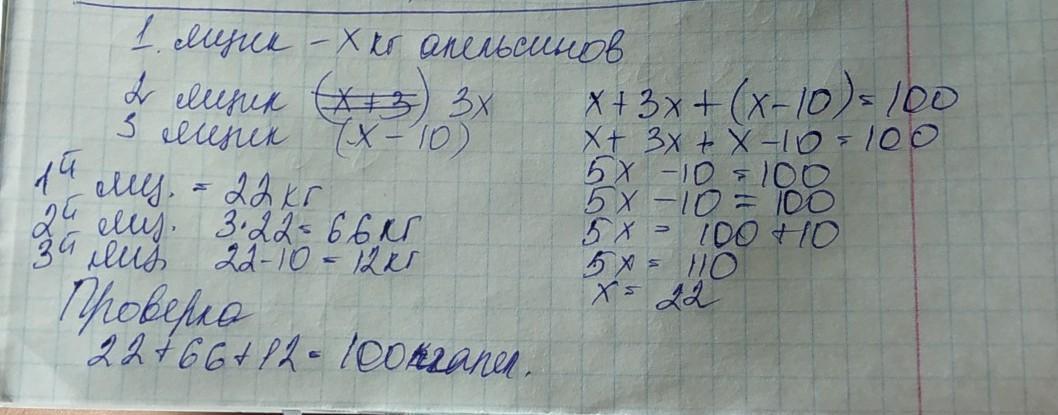 1. ящик - x кг апельсинов
2 ящик (x+3) 3x
3 ящик (x - 10)
1й ящ. = 22 кг
2й ящ. 3·22 = 66 кг
3й ящ. 22-10 = 12 кг
x + 3x + (x-10) = 100
x + 3x + x - 10 = 100
5x - 10 = 100
5x - 10 = 100
5x = 100 + 10
5x = 110
x = 22
Проверка
22+66+12 = 100 кг апел.